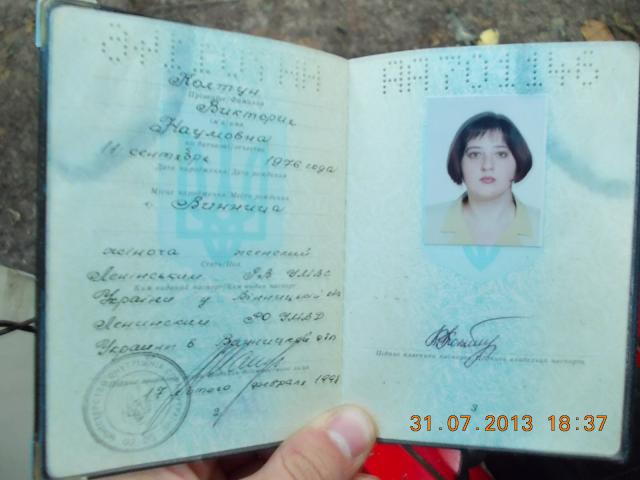 Колтун
Прізвище/Фамилия
Виктория
Ім'я/Имя
Наумовна
По батькові/Отчество
сентября 1976 года
Дата народження/Дата рождения
Місце народження/Место рождения
г. Винница
жіноча женский
Стать/Пол
Ленінським РВ УМВС
Ким виданий паспорт/Кем выдан паспорт
України у Вінницькій обл
Ленинским РО УМВД
Украины в Винницкой обл
17 лютого февраля 1998
2
Підпис власника паспорта/Подпись владельца паспорта
3
31.07.2013 18:37